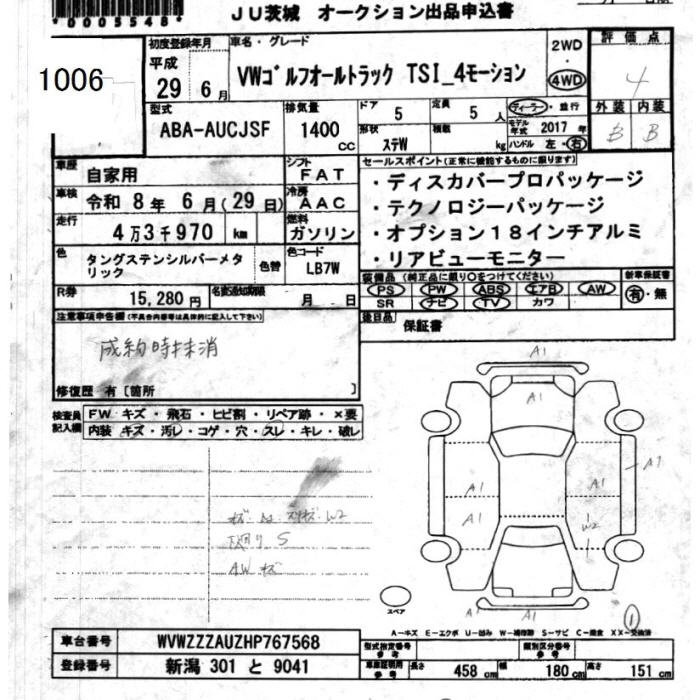 *0005548*
JU茨城 オークション出品申込書
1006
初度登録年月
平成
29 6月
車名・グレード
VWゴルフオールトラック TSI_4モーション
2WD
・
4WD
評価点
4
外装 内装
B B
型式
ABA-AUCJSF
排気量
1400
cc
ドア 5
定員 5 人
形状 ステW
積載 kg
ディーラー・並行
モデル年式 2017 年
ハンドル 左・右
車歴 自家用
シフト FAT
車検 令和 8年 6月(29日)
冷房 AAC
走行 4万3千970 km
燃料 ガソリン
色 タングステンシルバーメタリック
色替
色コード LB7W
R券 15,280円
名変通知期限 月 日
セールスポイント(正常に機能するものに限ります)
・ディスカバープロパッケージ
・テクノロジーパッケージ
・オプション18インチアルミ
・リアビューモニター
装備品 (純正品に限り○をつけてください)
PS PW ABS エアB AW
SR ナビ TV カワ
新車保証書
有・無
後日品 保証書
注意事項申告欄(不具合内容等は具体的に記入して下さい)
成約時抹消
修復歴 有 [箇所 ]
検査員記入欄
FW キズ・飛石・ヒビ割・リペア跡・×要
内装 キズ・汚レ・コゲ・穴・スレ・キレ・破レ
A1
A1
A1
A1 A1
A1 W2
S
AWキズ
スペア
1
A-キズ E-エクボ U-凹み W-補修跡 S-サビ C-腐食 XX-交換済
車台番号 WVWZZZAUZHP767568
登録番号 新潟 301 と 9041
型式指定番号 参考
類別区分番号 参考
車庫証明用 参考
長さ 458 cm 幅 180 cm 高さ 151 cm